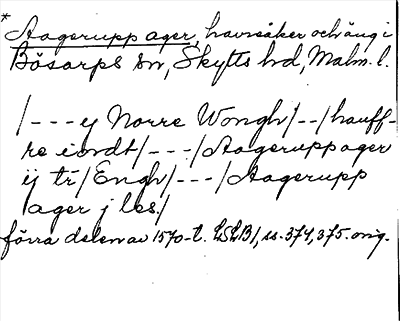 * Aagerupp ager, havreåker och äng i
Bösarps sn, Skytts hd, Malm. l.
/---ij Norre Wongh/--/hauff-
re iordt/---/Aageruppager
ij tr/Engh/---/Aagerupp
ager j les/
förra delen av 1570-t. LSLB1, ss. 374, 375. orig.